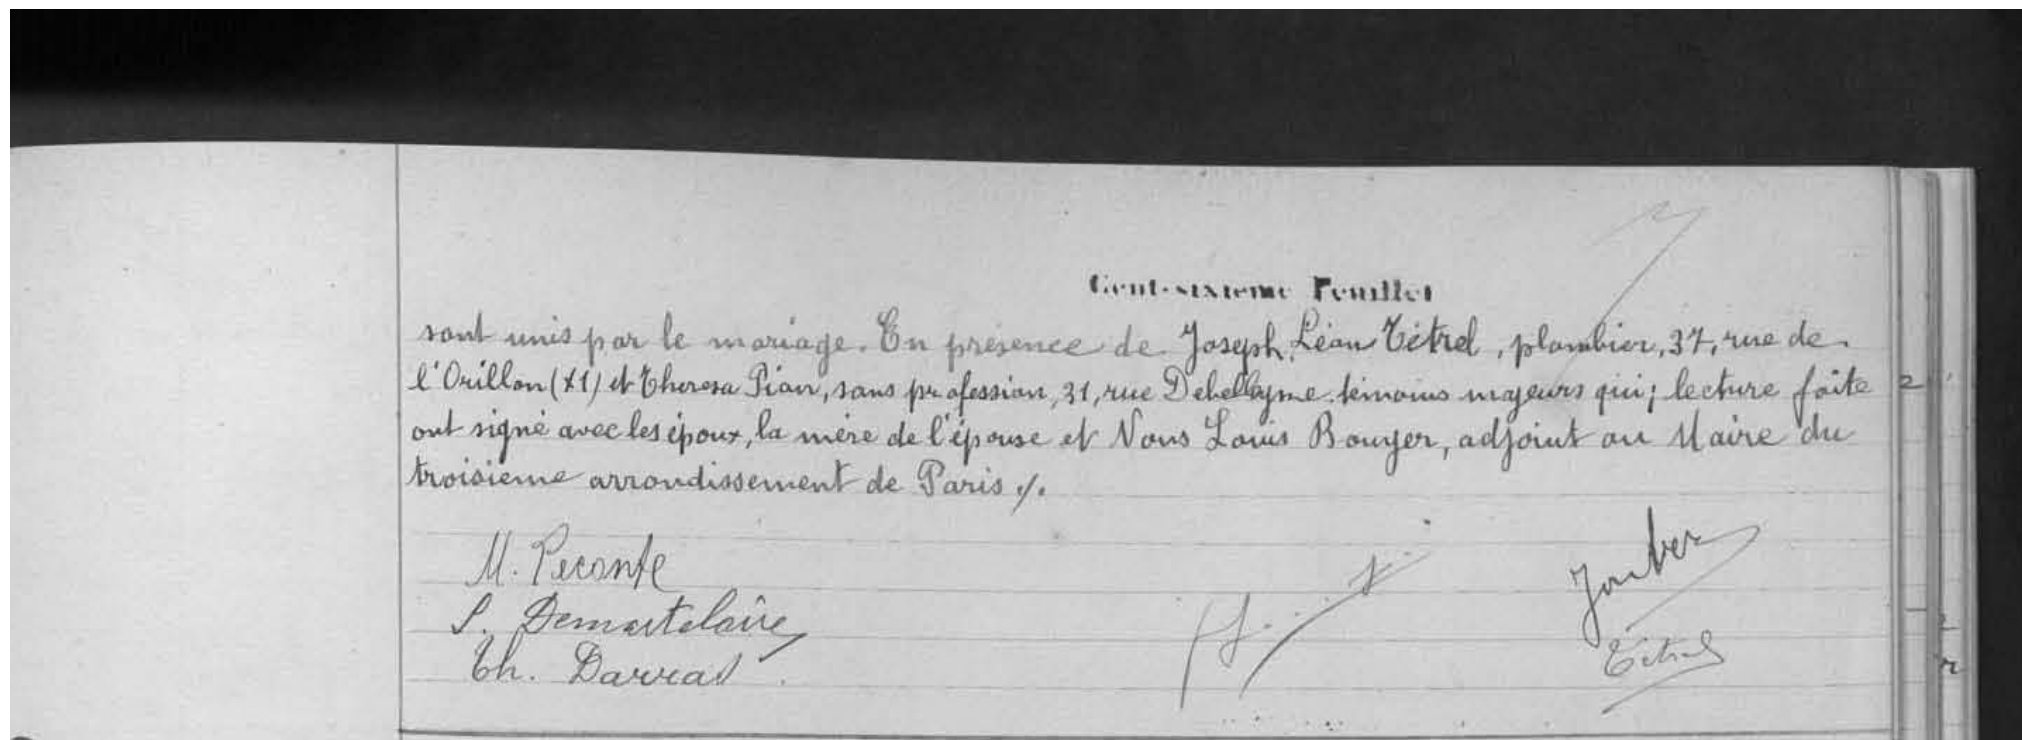 Cent-sixième Feuillet
sont unis par le mariage. En présence de Joseph, Léon Tétrel, plombier, 37, rue de
l'Orillon (XI) et Theresa Pian, sans profession, 31, rue Debelleyme. témoins majeurs qui; lecture faite
ont signé avec les époux, la mère de l'épouse et Nous Louis Bouyer, adjoint au Maire du
troisième arrondissement de Paris ./.
M. Peconte
S. Demartelaire
Th. Darras
Tétrel